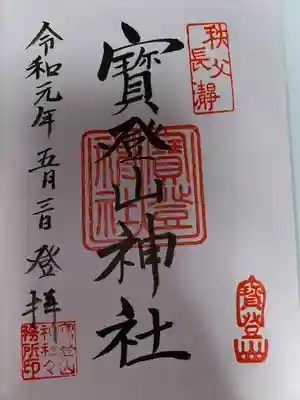 秩父
長瀞
寶登山神社
寶登山
神社
寶登山
令和元年五月三日登拝
宝登山
神社々
務所印